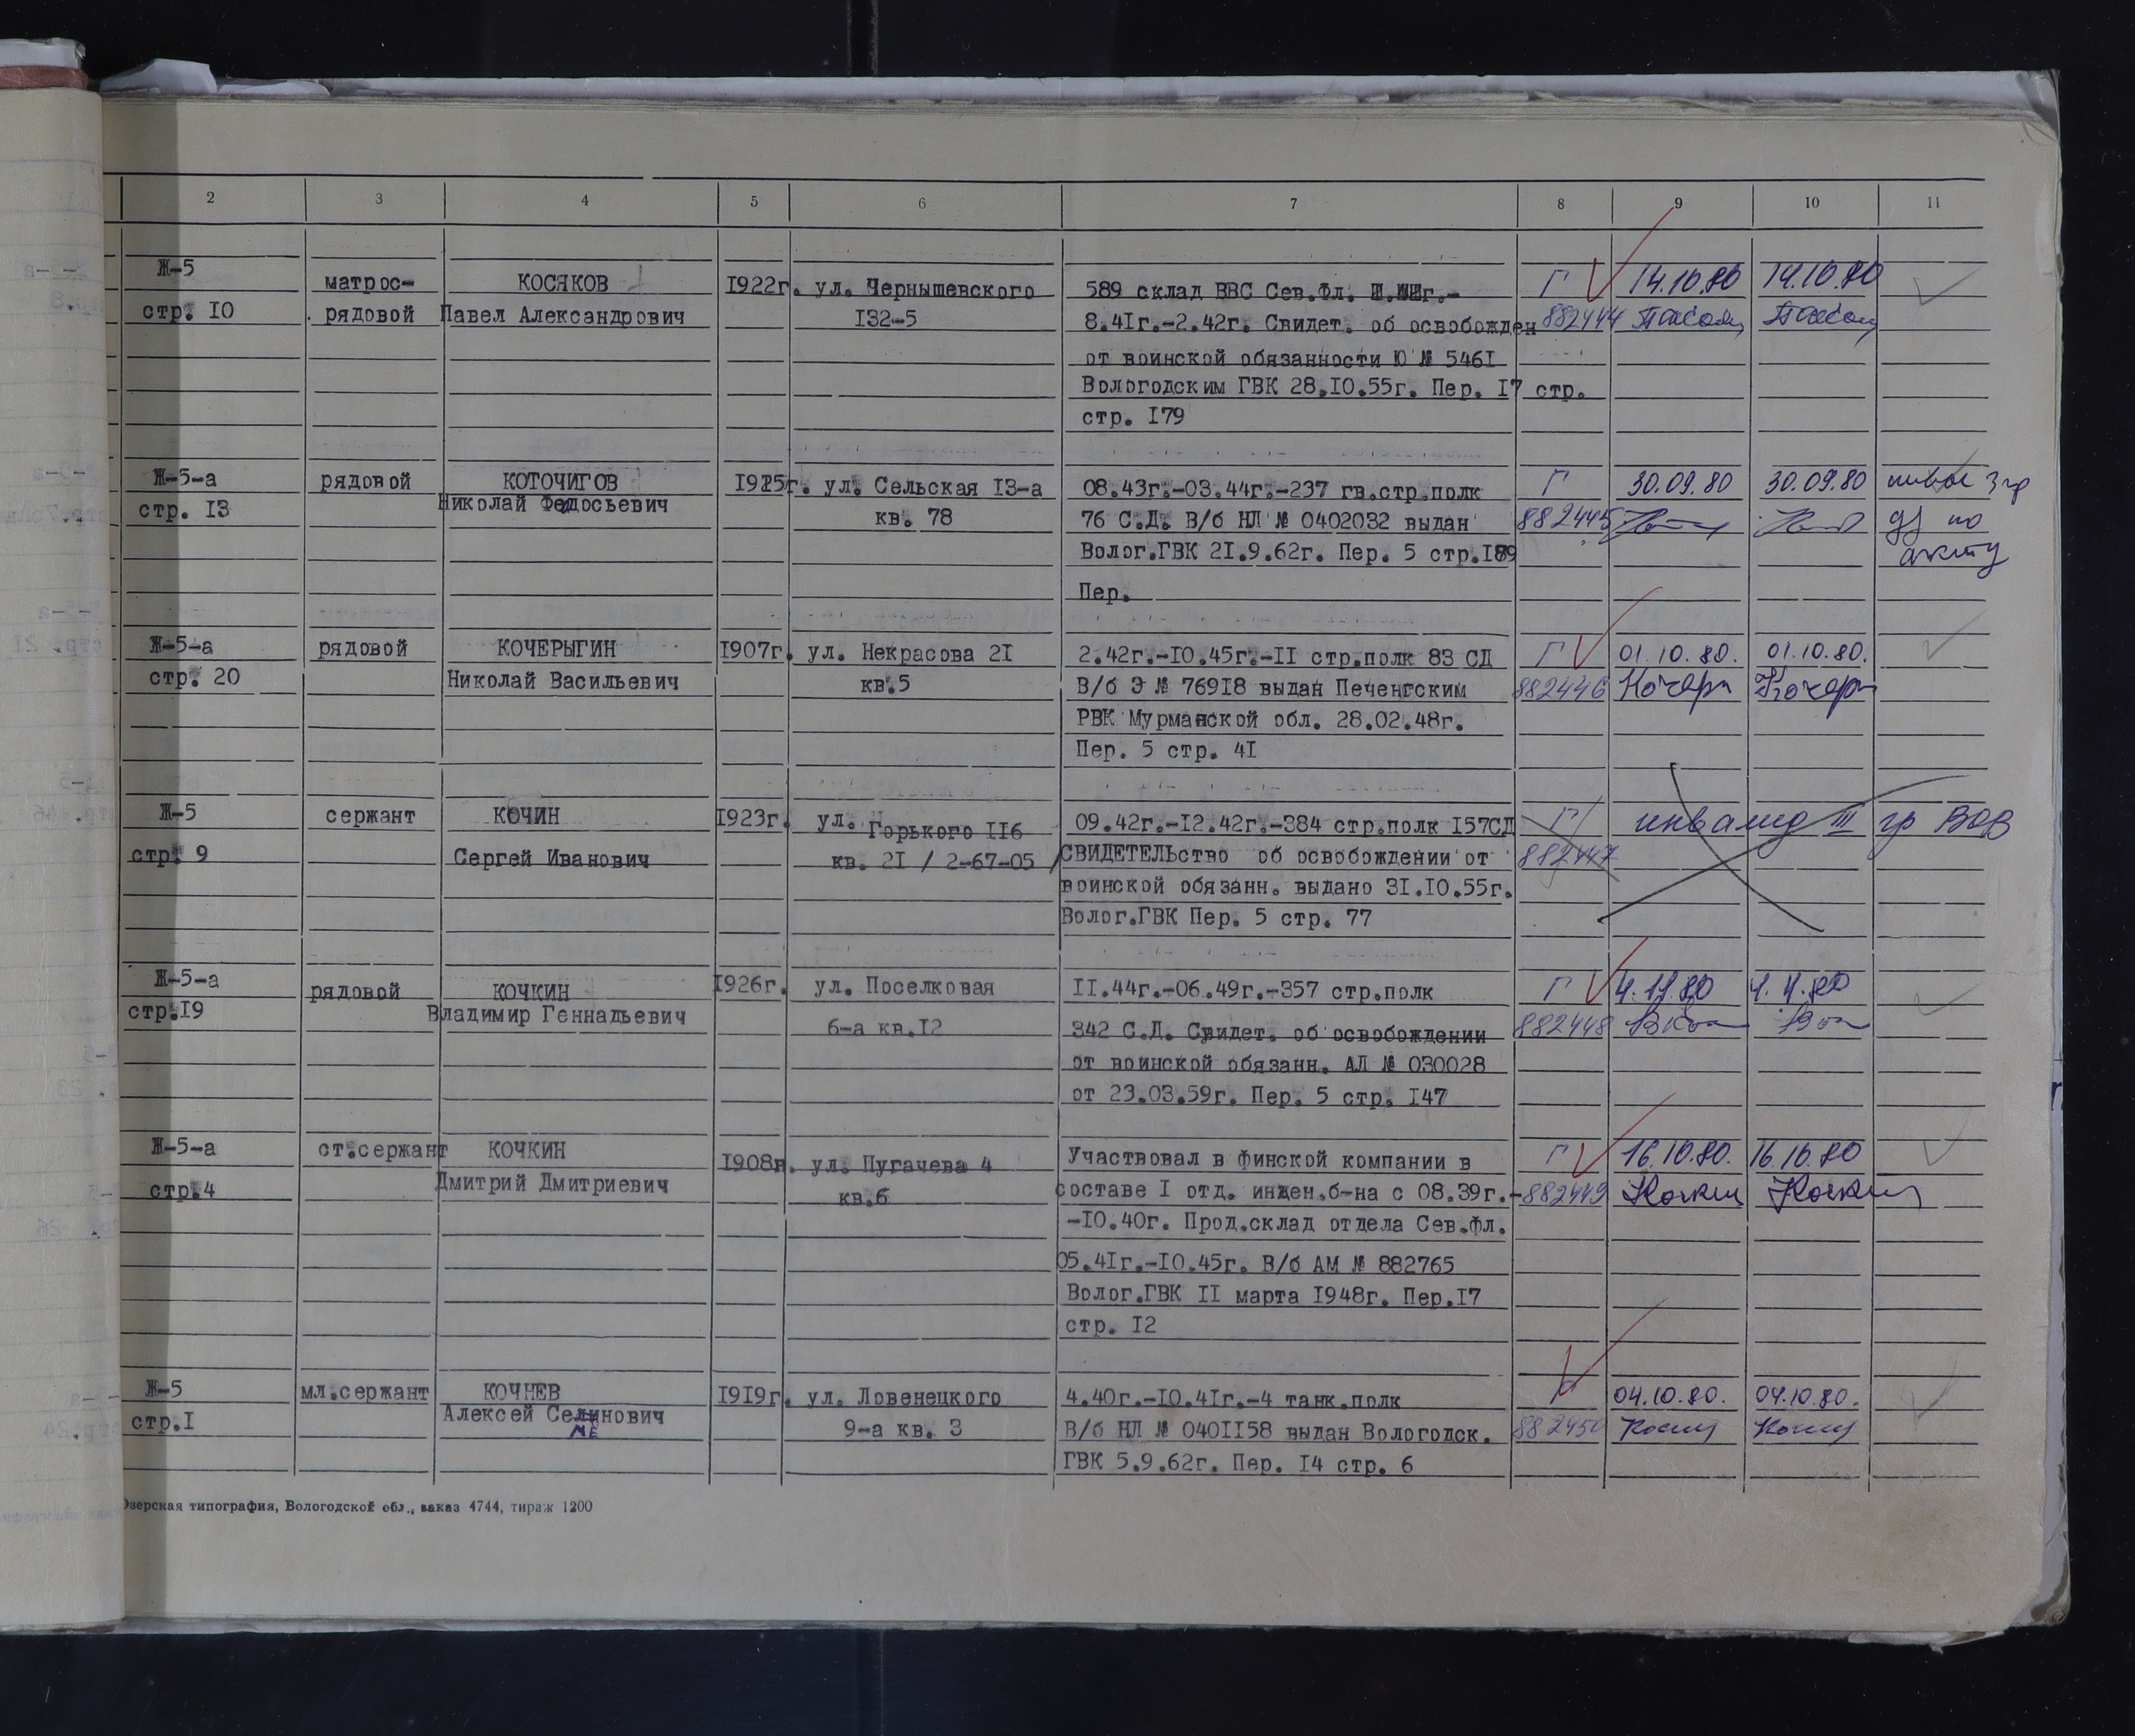 2 3 4 5 6 7 8 9 10 11
Ж-5 матрос- КОСЯКОВ 1922г. ул. Чернышевского 589 склад ВВС Сев.Фл. Г 14.10.80 14.10.80
стр. 10 рядовой Павел Александрович 132-5 8.41г.-2.42г. Свидет. об освобожден 882444
от воинской обязанности Ю № 5461
Вологодским ГВК 28.10.55г. Пер. 17 стр.
стр. 179
Ж-5-а рядовой КОТОЧИГОВ 1925г. ул. Сельская 13-а 08.43г.-03.44г.-237 гв.стр.полк Г 30.09.80 30.09.80 3 гр
стр. 13 Николай Федосьевич кв. 78 76 С.Д. В/б НЛ № 0402032 выдан 882445 по
Волог.ГВК 21.9.62г. Пер. 5 стр.189 акту
Пер.
Ж-5-а рядовой КОЧЕРЫГИН 1907г. ул. Некрасова 21 2.42г.-10.45г.-11 стр.полк 83 СД Г 01.10.80. 01.10.80.
стр. 20 Николай Васильевич кв.5 В/б Э № 76918 выдан Печенгским 882446 Кочеры Кочеры
РВК Мурманской обл. 28.02.48г.
Пер. 5 стр. 41
Ж-5 сержант КОЧИН 1923г. ул. Горького 116 09.42г.-12.42г.-384 стр.полк 157СД Г инвалид III гр ВОВ
стр. 9 Сергей Иванович кв. 21 / 2-67-05 / СВИДЕТЕЛЬство об освобождении от 882447
воинской обязанн. выдано 31.10.55г.
Волог.ГВК Пер. 5 стр. 77
Ж-5-а рядовой КОЧКИН 1926г. ул. Поселковая 11.44г.-06.49г.-357 стр.полк Г 4.11.80 4.11.80
стр.19 Владимир Геннадьевич 6-а кв.12 342 С.Д. Свидет. об освобождении 882448
от воинской обязанн. АЛ № 030028
от 23.03.59г. Пер. 5 стр. 147
Ж-5-а ст.сержант КОЧКИН 1908г. ул. Пугачева 4 Участвовал в финской компании в Г 16.10.80. 16.10.80
стр.4 Дмитрий Дмитриевич кв.6 составе 1 отд. инжен.б-на с 08.39г.- 882449 Кочкин Кочкин
-10.40г. Прод.склад отдела Сев.Фл.
05.41г.-10.45г. В/б АМ № 882765
Волог.ГВК 11 марта 1948г. Пер.17
стр. 12
Ж-5 мл.сержант КОЧНЕВ 1919г. ул. Ловенецкого 4.40г.-10.41г.-4 танк.полк Г 04.10.80. 04.10.80.
стр.1 Алексей Селинович 9-а кв. 3 В/б НЛ № 0401158 выдан Вологодск. 882450
МЕ
ГВК 5.9.62г. Пер. 14 стр. 6
Озерская типография, Вологодской обл., заказ 4744, тираж 1200